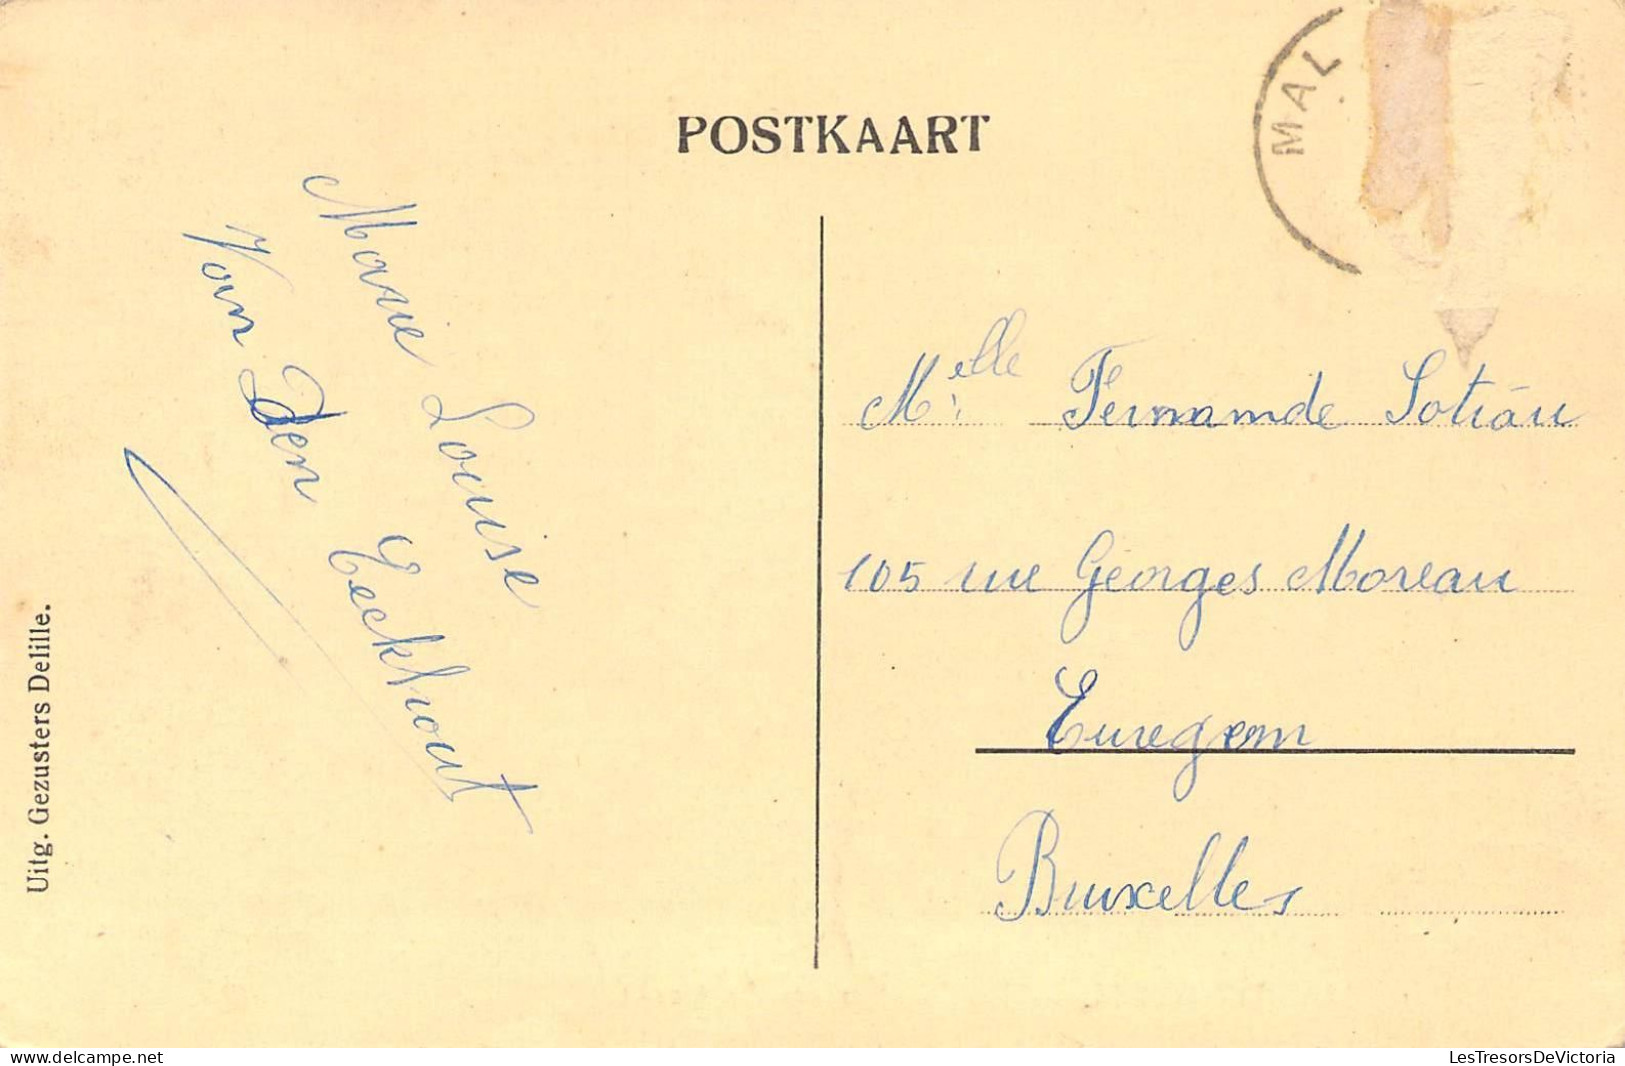 POSTKAART
MAL
Marie Louise
Van Den Eeckhout
Melle Fernande Sotiau
105 rue Georges Moreau
Cureghem
Bruxelles
Uitg. Gezusters Delille.
delcampe.net
LesTresorsDeVictoria